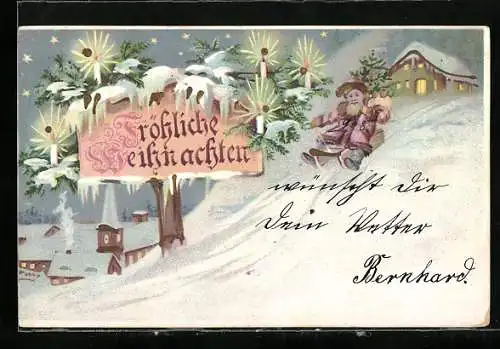 Fröhliche
Weihnachten
wünscht Dir
Dein Vetter
Bernhard.